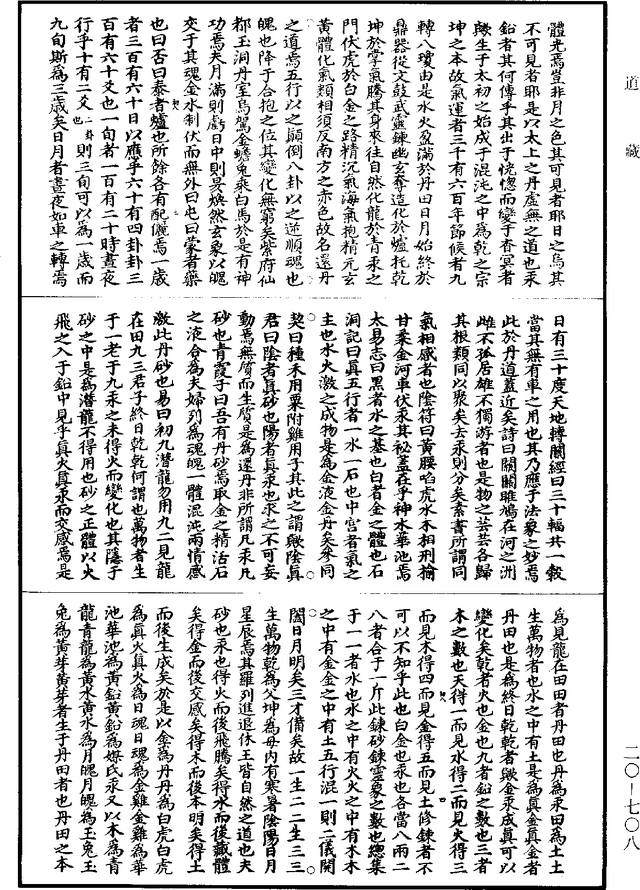 道藏
體光焉豈非月之色其可見者耶日之烏其
不可見者耶是以太上之丹虛無之道也汞
鉛者其何傳乎其出于恍惚而變于杳冥者
歟生于太初之始成于混沌之中為乾之宗
坤之本故氣運者三千有六百年節候者九
轉八瓊由是水火盈滿於丹田日月始終於
鼎器從文鼓武靈鍊幽玄奪造化於爐托乾
坤於掌氣騰其身來往自然化龍於青汞之
門伏虎於白金之路精沉氣海氣抱精元玄
黃體化氣類相須反南方之赤色故名還丹
之道焉五行以之顛倒八卦以之逆順魂也
魄也降于合抱之位其變化無窮矣紫府仙
都玉洞丹室烏駕金蟾兔乘白馬於是有神
功焉夫月滿則虧日中則昃煥然玄象以魄
交于其魂金水制伏而無外曰屯曰蒙者藥
也曰否曰泰者爐也所餘各有配儷焉一歲
者三百有六十日以應乎六十有四卦卦三
百有六十爻也一旬者一百有二十時晝夜
行乎十有二爻一卦也則三旬可以為一歲而
九旬斯為三歲矣日月者晝夜如車之轉焉
日有三十度天地轉關經曰三十輻共一轂
當其無有車之用也其乃應乎法象之妙焉
此於丹道蓋近矣詩曰關關雎鳩在河之洲
雌不孤居雄不獨游者也是物之芸芸各歸
其根類同以聚矣去汞則分矣素書所謂同
氣相感者也陰符曰黃腰啗虎水木相刑揄
甘桑金河車伏汞其祕蓋在乎神水華池焉
太易志曰黑者水之基也白者金之體也石
洞記曰真五行者一水一石也中宮者氣之
主也水火激之成物是為金液金丹矣參同
契曰種禾用粟附雞用子其此之謂歟陰真
君曰陰者真砂也陽者真汞也求之不可妄
動焉無質而生質是為還丹非所謂凡汞凡
砂也青霞子曰吾有丹砂焉取金之精活石
之液合為夫婦列為魂魄一體混沌兩情感
激此丹砂也易曰初九潛龍勿用九二見龍
在田九三君子終日乾乾何謂也萬物者生
于一老于九汞之未得火而變化也其隱于
砂之中是為潛龍不得用也砂之正體以火
飛之入于鉛中見乎真火真汞而交感焉是
為見龍在田田者丹田也丹為汞田為土土
生萬物者也水之中有土是為真金真金者
丹田也是為終日乾乾乾者歟金汞成真可以
變化矣乾者火也金也九者鉛之數也三者
木之數也天得一而見水得二而見火得三
而見木得四而見金得五而見土修鍊者不
可以不知乎此也白金也汞也各當八兩二
八者合于一斤此鍊砂鍊靈象之數也總集
于一一者水也水之中有火火之中有木木
之中有金金之中有土五行混一則二儀開
闔日月明矣三才備矣故一生二二生三三
生萬物乾為父坤為母內有寒暑陰陽日月
星辰焉其羅列進退休王皆自然之道也夫
砂也汞也得火而後飛騰矣得水而後藏體
矣得金而後交感矣得木而後本明矣得土
而後生成矣於是以金為丹丹為白虎白虎
為真火真火為日魂日魂為金雞金雞為華
池華池為黃鉛黃鉛為媒氏汞又以木為青
龍青龍為黃水黃水為月魄月魄為玉兔玉
兔為黃芽黃芽者生于丹田者也丹田之本
二〇—七〇八